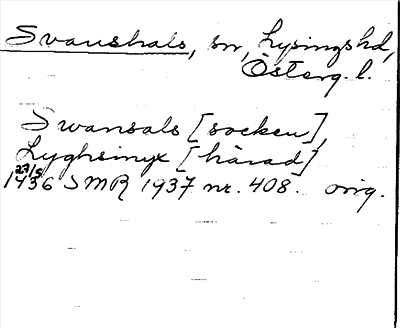 Svanshals, sn, Lysingshd,
Österg. l.
Swansals [socken],
Lyghsingx [härad]
23/5
1436 SMR 1937 nr. 408. orig.